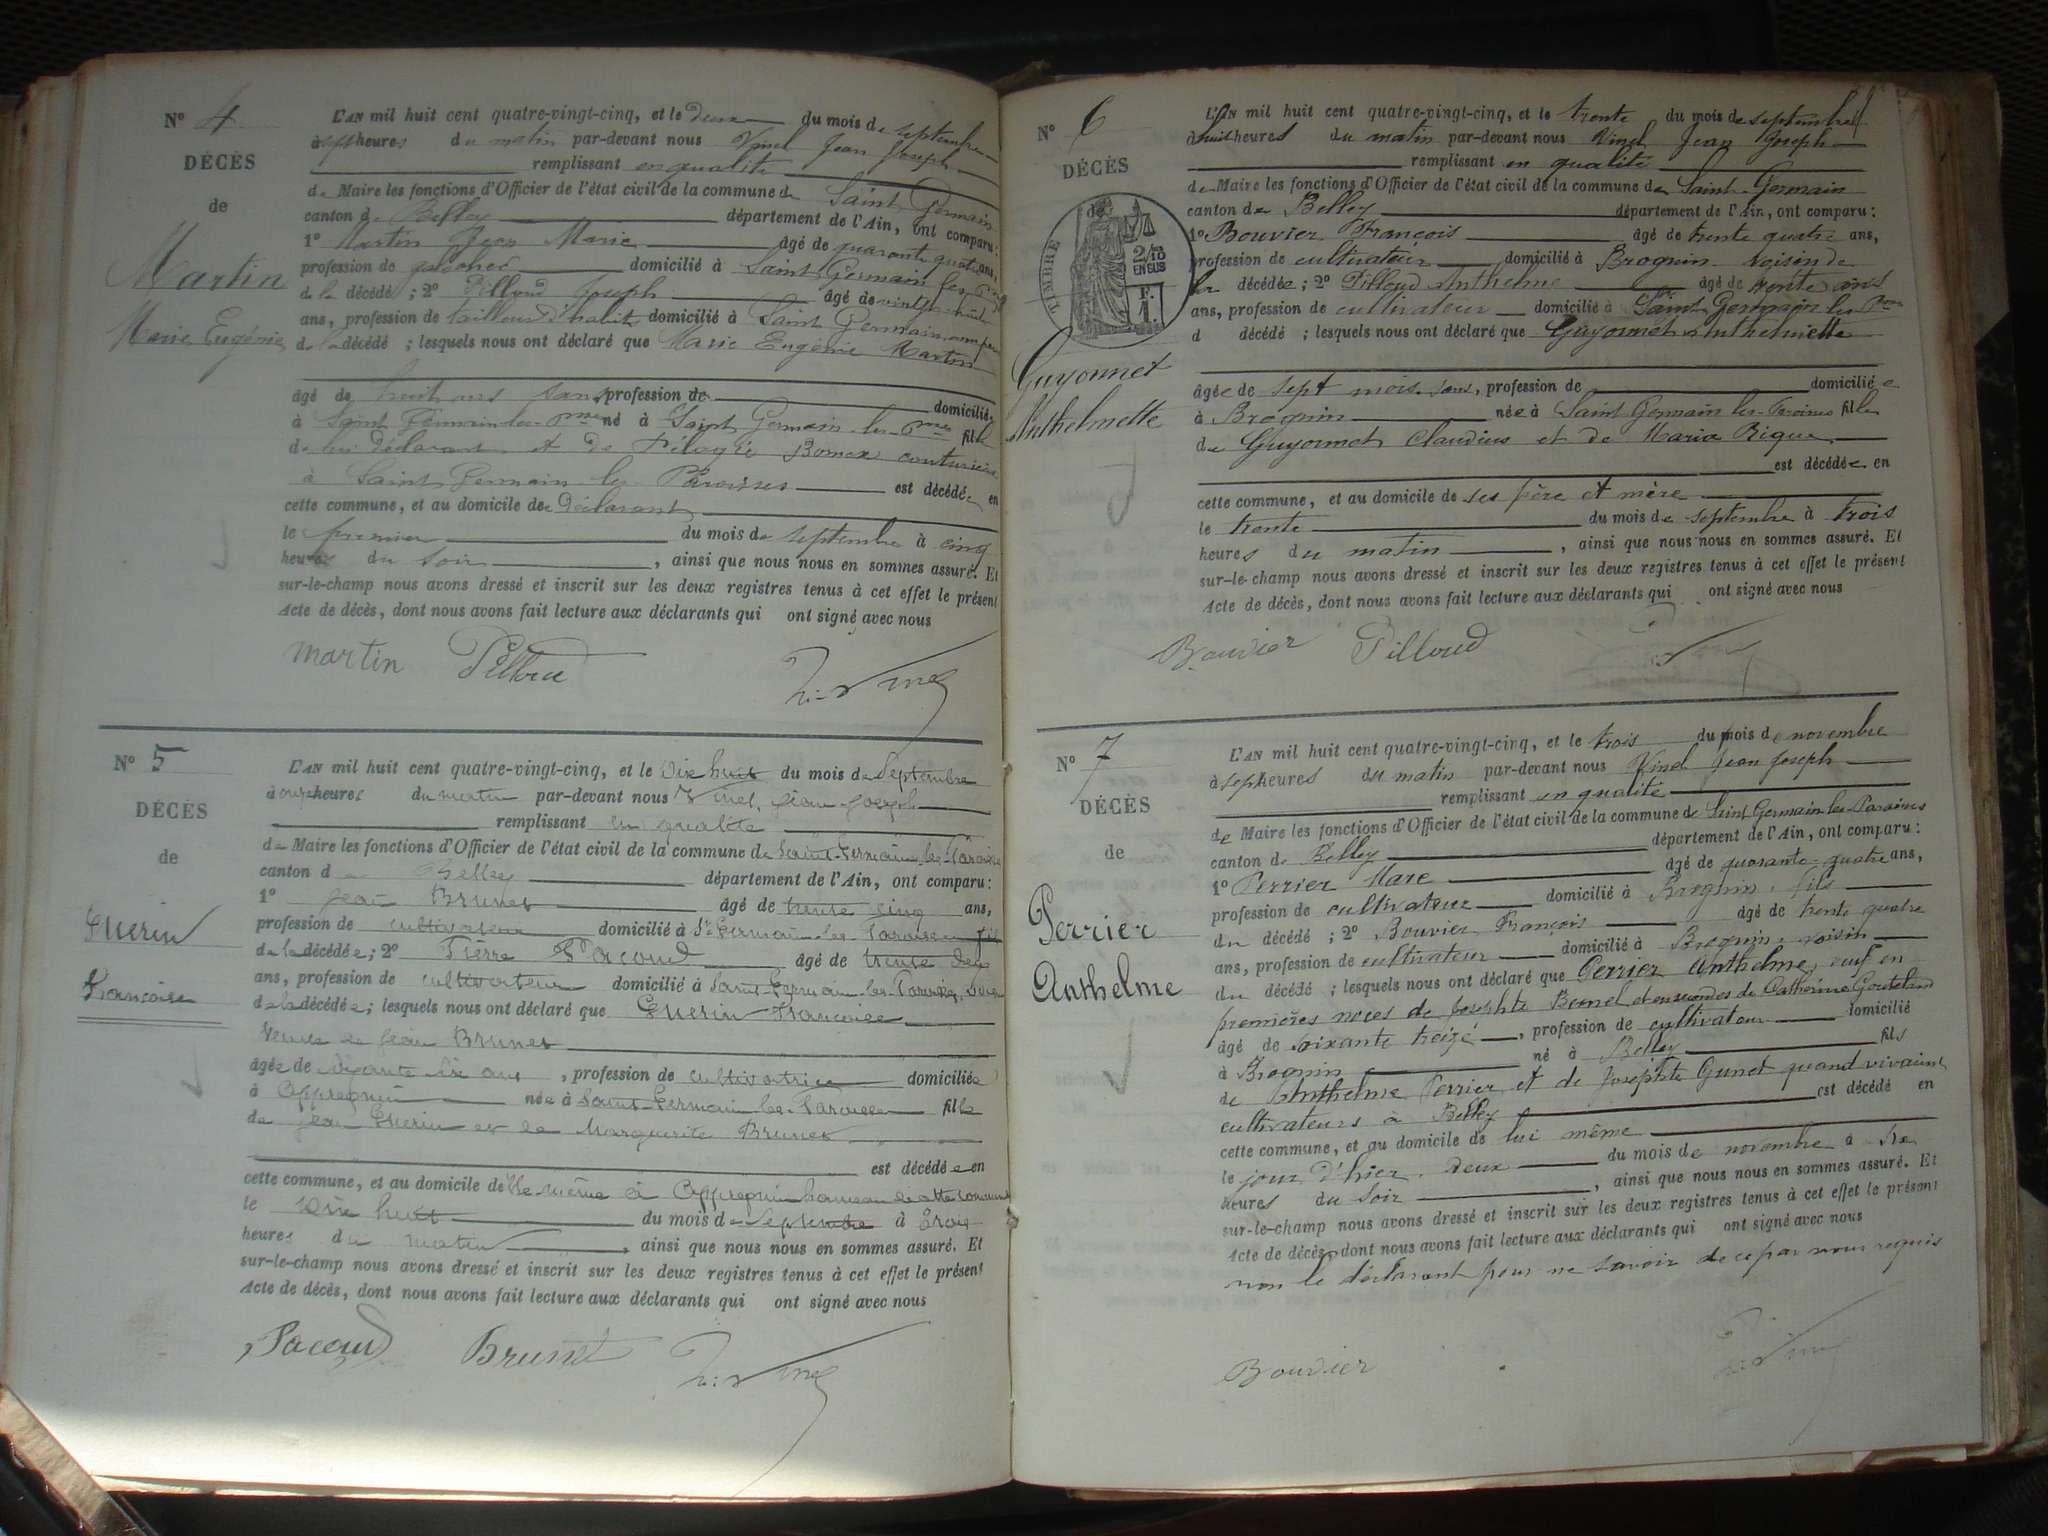 N° 4
DÉCÈS
de
Martin
Marie Eugénie
L'AN mil huit cent quatre-vingt-cinq, et le deux du mois de septembre
à sept heures du matin par-devant nous Vinel Jean Joseph
remplissant en qualité
de Maire les fonctions d'Officier de l'état civil de la commune de Saint Germain
canton de Belley département de l'Ain, ont comparu:
1° Martin Jean Marie âgé de quarante quatre ans,
profession de domicilié à Saint Germain les
de la décédé ; 2° Pilloud Joseph âgé de vingt huit
ans, profession de tailleur d'habits domicilié à Saint Germain
de la décédé ; lesquels nous ont déclaré que Marie Eugénie Martin
âgé de huit ans sans profession de domicilié
à Saint Germain les Pses né à Saint Germain les Pses fille
de lui déclarant et de couturière
à Saint Germain les Paroisses est décédée en
cette commune, et au domicile de Déclarant
le premier du mois de septembre à cinq
heures du soir , ainsi que nous nous en sommes assuré. Et
sur-le-champ nous avons dressé et inscrit sur les deux registres tenus à cet effet le présent
Acte de décès, dont nous avons fait lecture aux déclarants qui ont signé avec nous
martin Pilloud
N° 5
DÉCÈS
de
Guerin
Françoise
L'AN mil huit cent quatre-vingt-cinq, et le dix huit du mois de Septembre
à onze heures du matin par-devant nous Vinel, Jean Joseph
remplissant en qualité
de Maire les fonctions d'Officier de l'état civil de la commune de Saint-Germain-les-Paroisses
canton de Belley département de l'Ain, ont comparu:
1° Jean Brunet âgé de trente cinq ans,
profession de cultivateur domicilié à St Germain-les-Paroisses fils
de la décédée; 2° Pierre Pacoud âgé de trente deux
ans, profession de cultivateur domicilié à Saint-Germain-les-Paroisses,
de la décédée; lesquels nous ont déclaré que Guerin Françoise
Veuve de Jean Brunet
âgée de ans , profession de cultivatrice domiciliée
à Appregnin née à Saint-Germain-les-Paroisses fille
de Jean Guerin et de Marguerite Brunet
est décédée en
cette commune, et au domicile de elle même à Appregnin hameau de cette commune
le dix huit du mois de Septembre à trois
heures du matin , ainsi que nous nous en sommes assuré. Et
sur-le-champ nous avons dressé et inscrit sur les deux registres tenus à cet effet le présent
Acte de décès, dont nous avons fait lecture aux déclarants qui ont signé avec nous
Pacoud Brunet
N° 6
DÉCÈS
de
TIMBRE
2/10
EN SUS
F.
1.
Guyonnet
Anthelmette
L'AN mil huit cent quatre-vingt-cinq, et le trente du mois de septembre
à huit heures du matin par-devant nous Vinel Jean Joseph
remplissant en qualité
de Maire les fonctions d'Officier de l'état civil de la commune de Saint-Germain
canton de Belley département de l'Ain, ont comparu:
1° Bouvier François âgé de trente quatre ans,
profession de cultivateur domicilié à Brognin voisin de
la décédée; 2° Pilloud Anthelme âgé de trente ans
ans, profession de cultivateur domicilié à Saint Germain les Pses
d décédé ; lesquels nous ont déclaré que Guyonnet Anthelmette
âgée de sept mois sans, profession de domiciliée
à Brognin née à Saint Germain les Paroisses fille
de Guyonnet Claudius et de Maria Rigue
est décédée en
cette commune, et au domicile de ses père et mère
le trente du mois de septembre à trois
heures du matin , ainsi que nous nous en sommes assuré. Et
sur-le-champ nous avons dressé et inscrit sur les deux registres tenus à cet effet le présent
Acte de décès, dont nous avons fait lecture aux déclarants qui ont signé avec nous
Bouvier Pilloud
N° 7
DÉCÈS
de
Perrier
Anthelme
L'AN mil huit cent quatre-vingt-cinq, et le trois du mois de novembre
à sept heures du matin par-devant nous Vinel Jean Joseph
remplissant en qualité
de Maire les fonctions d'Officier de l'état civil de la commune de Saint Germain les Paroisses
canton de Belley département de l'Ain, ont comparu:
1° Perrier Marc âgé de quarante-quatre ans,
profession de cultivateur domicilié à Brognin, fils
du décédé ; 2° Bouvier François âgé de trente quatre
ans, profession de cultivateur domicilié à Brognin, voisin
du décédé ; lesquels nous ont déclaré que Perrier Anthelme, veuf en
premières noces de Josephte et en secondes de Catherine
âgé de soixante treize , profession de cultivateur domicilié
à Brognin né à Belley fils
de Anthelme Perrier et de Josephte Gunet quand vivaient
cultivateurs à Belley est décédé en
cette commune, et au domicile de lui même
le jour d'hier, deux du mois de novembre à
heures du soir , ainsi que nous nous en sommes assuré. Et
sur-le-champ nous avons dressé et inscrit sur les deux registres tenus à cet effet le présent
Acte de décès, dont nous avons fait lecture aux déclarants qui ont signé avec nous
non le déclarant pour ne savoir de ce par nous requis
Bouvier